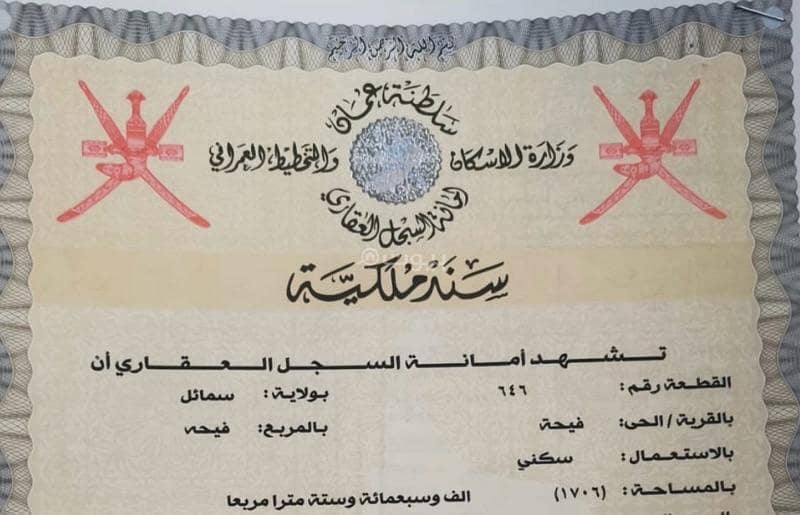 بسم الله الرحمن الرحيم
سلطنة عمان
وزارة الاسكان والتخطيط العمراني
امانة السجل العقاري
سند ملكية
تشهد أمانة السجل العقاري أن
القطعة رقم: ٦٤٦ بولاية: سمائل
بالقرية / الحى: فيحة بالمربع: فيحه
بالاستعمال: سكني
بالمساحة: (١٧٠٦) الف وسبعمائة وستة مترا مربعا